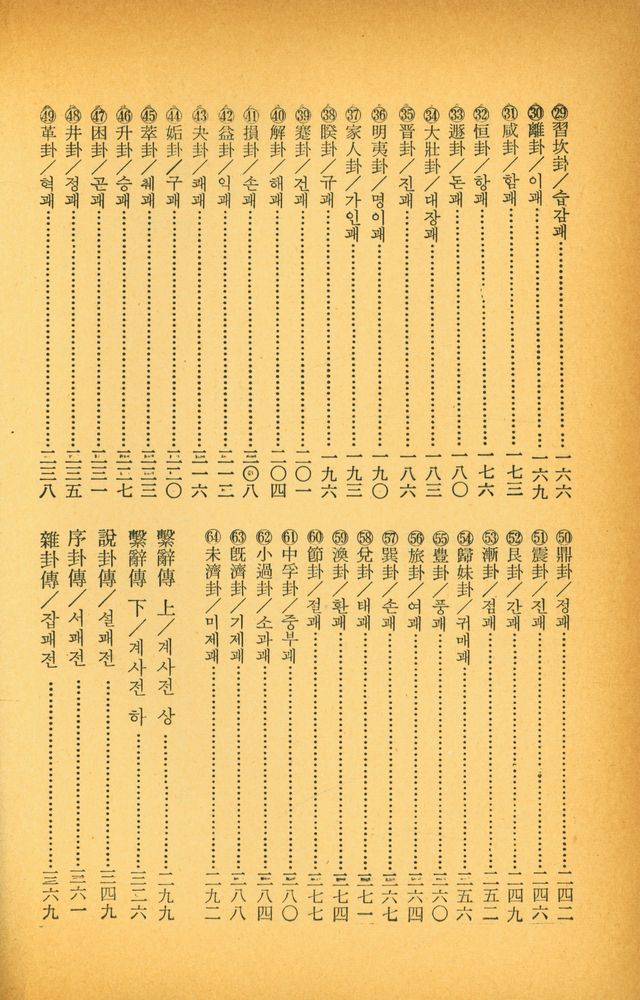 ㉙習坎卦/습감괘……一六六
㉚離卦/이괘……一六九
㉛咸卦/함괘……一七三
㉜恒卦/항괘……一七六
㉝遯卦/돈괘……一八〇
㉞大壯卦/대장괘……一八三
㉟晋卦/진괘……一八六
㊱明夷卦/명이괘……一九〇
㊲家人卦/가인괘……一九三
㊳睽卦/규괘……一九六
㊴蹇卦/건괘……二〇一
㊵解卦/해괘……二〇四
㊶損卦/손괘……二〇八
㊷益卦/익괘……二一二
㊸夬卦/쾌괘……二一六
㊹姤卦/구괘……二二〇
㊺萃卦/췌괘……二二三
㊻升卦/승괘……二二七
㊼困卦/곤괘……二三一
㊽井卦/정괘……二三五
㊾革卦/혁괘……二三八
㊿鼎卦/정괘……二四二
51震卦/진괘……二四六
52艮卦/간괘……二四九
53漸卦/점괘……二五二
54歸妹卦/귀매괘……二五六
55豊卦/풍괘……二六〇
56旅卦/여괘……二六四
57巽卦/손괘……二六七
58兌卦/태괘……二七一
59渙卦/환괘……二七四
60節卦/절괘……二七七
61中孚卦/중부괘……二八〇
62小過卦/소과괘……二八四
63旣濟卦/기제괘……二八八
64未濟卦/미제괘……二九二
繫辭傳 上/계사전 상……二九九
繫辭傳 下/계사전 하……三二六
說卦傳/설괘전……三四九
序卦傳/서괘전……三六一
雜卦傳/잡괘전……三六九